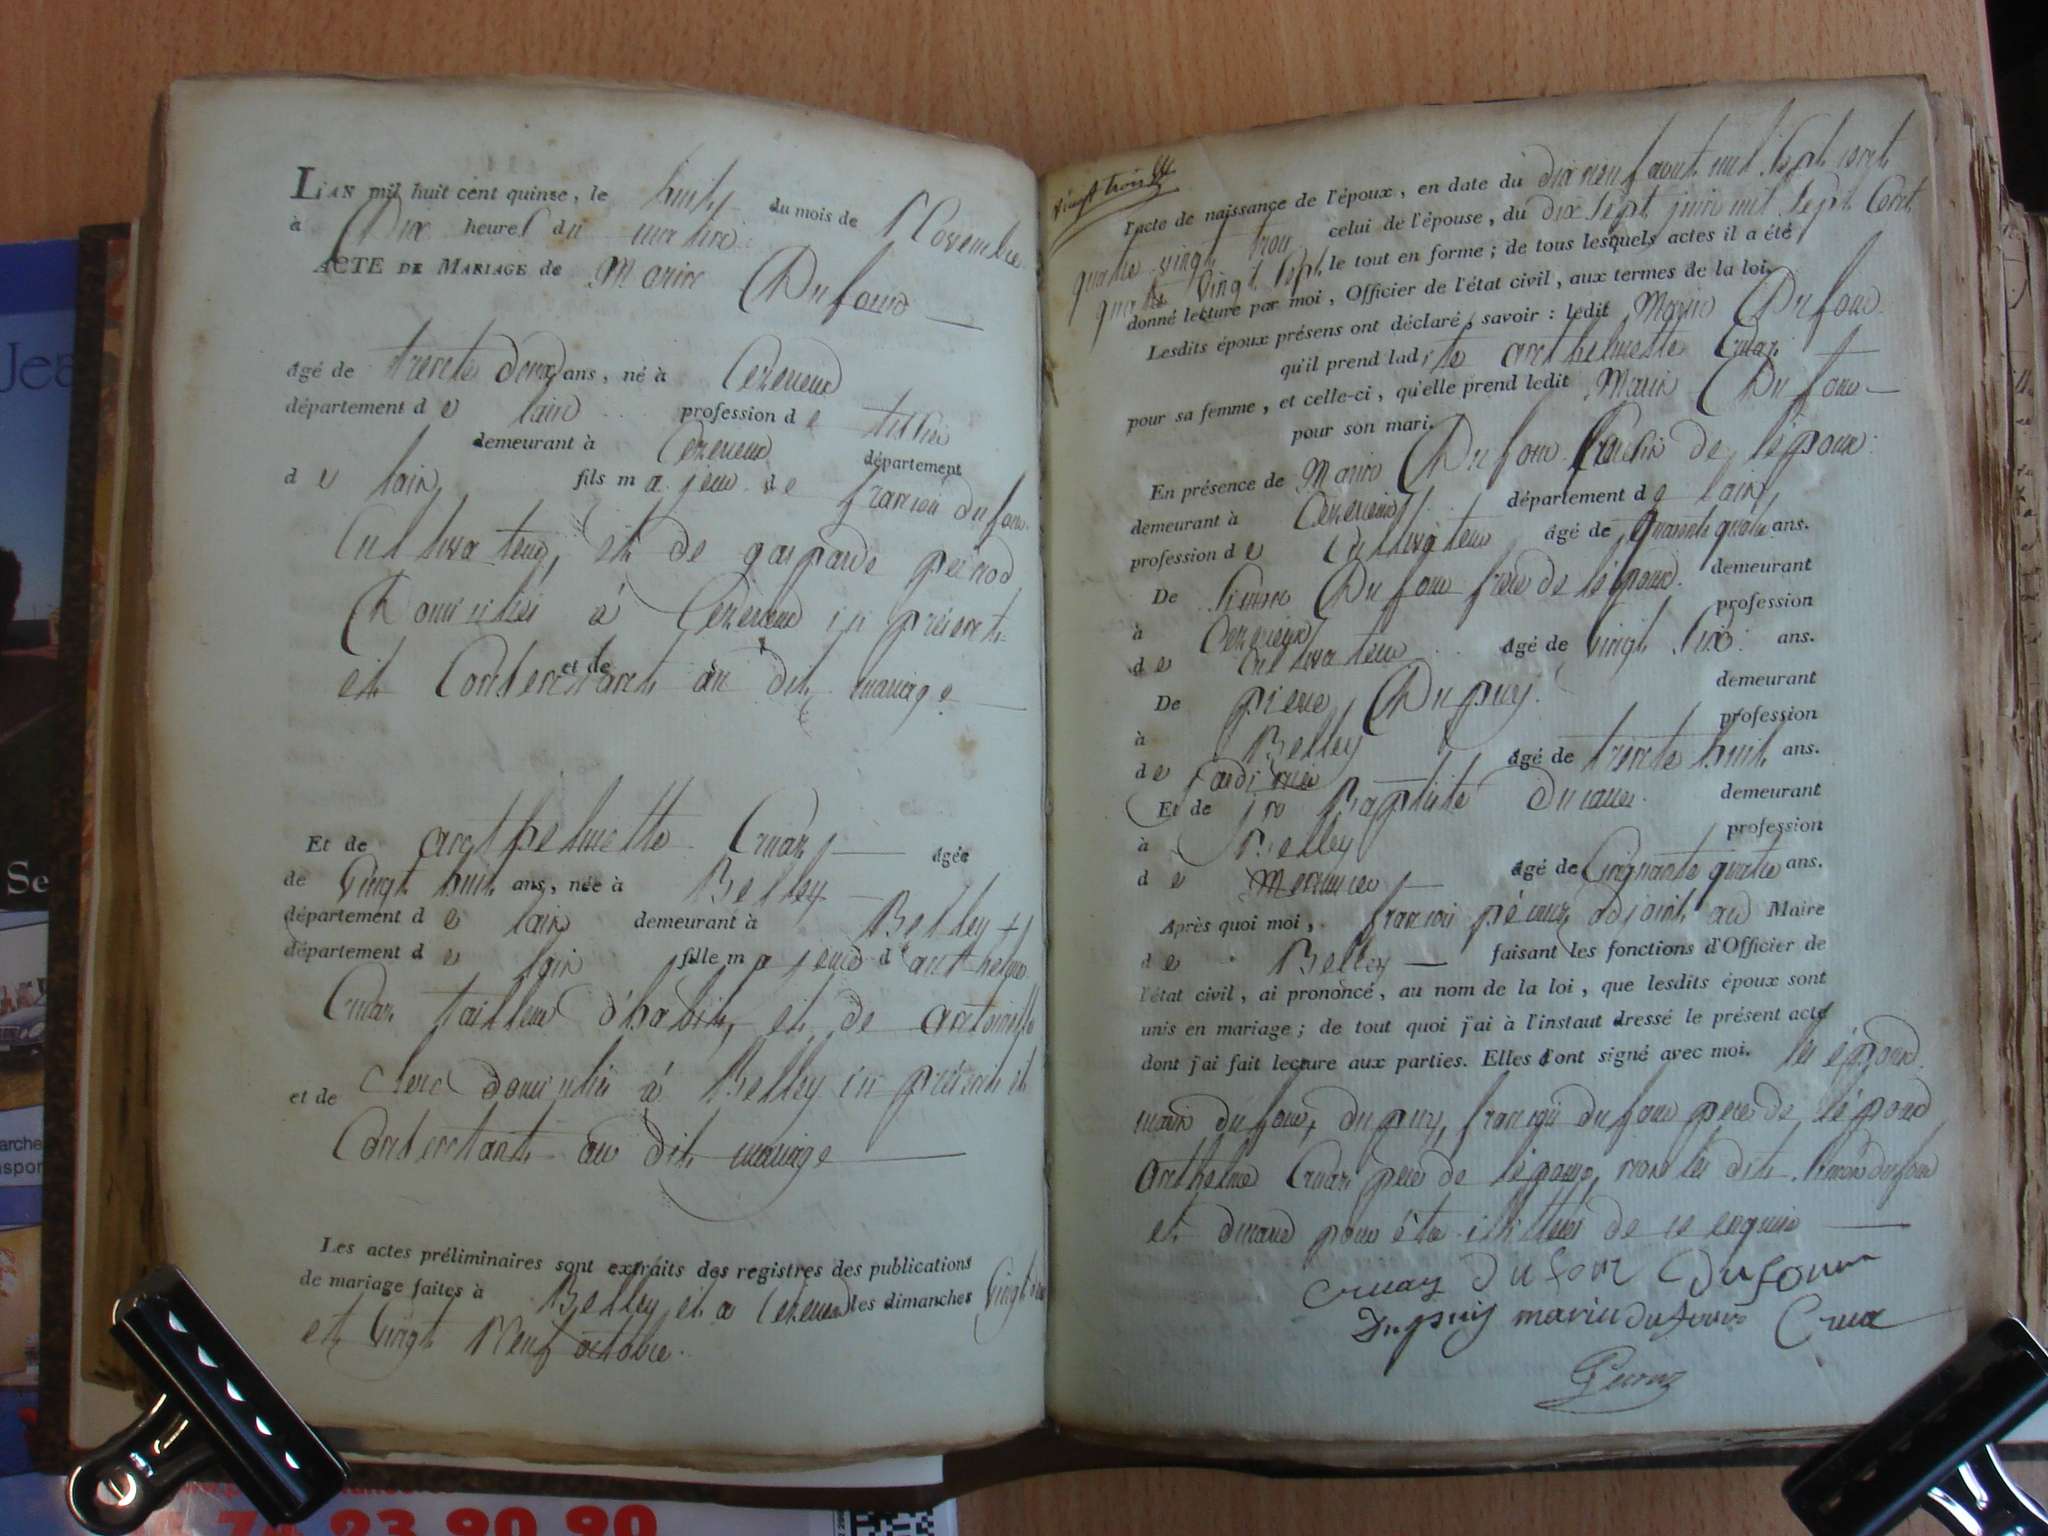 L'AN mil huit cent quinze, le huit du mois de Novembre
à Dix heures du matin
ACTE DE MARIAGE de Marin Dufour
âgé de trente deux ans, né à Ceyzerieux
département de lain profession de
demeurant à Ceyzerieux département
de lain fils majeur de francois dufour
Cultivateur, et de gasparde pernod
Domicilies à Ceyzerieux ici présents
et de
et Consentants au dit mariage
Et de anthelmette Cruaz âgée
de vingt huit ans, née à Belley
département de lain demeurant à Belley
département de lain fille majeure d'anthelme
Cruaz tailleur d'habits, et de antoinette
et de Clerc domicilies à Belley ici présents et
Consentants au dit mariage
Les actes préliminaires sont extraits des registres des publications
de mariage faites à Belley et a Ceyzerieux les dimanches vingt deux
et vingt Neuf octobre.
vingt trois
l'acte de naissance de l'époux, en date du dix neuf aout mil sept cent
quatre vingt trois celui de l'épouse, du dix sept juin mil sept Cent
quatre vingt sept le tout en forme; de tous lesquels actes il a été
donné lecture par moi, Officier de l'état civil, aux termes de la loi.
Lesdits époux présens ont déclaré, savoir: ledit Marin Dufour
qu'il prend ladite anthelmette Cruaz
pour sa femme, et celle-ci, qu'elle prend ledit Marin Dufour
pour son mari.
En présence de Marin Dufour Cousin de l'époux
demeurant à Ceyzerieux département de lain
profession de Cultivateur âgé de Quarante quatre ans.
De Simon Dufour frere de l'époux. demeurant
à Ceyzerieux profession
de Cultivateur âgé de vingt six ans.
De pierre Dupuy. demeurant
à Belley profession
de Jardinier âgé de trente huit ans.
Et de jn Baptiste Durand demeurant
à Belley profession
de Menuisier âgé de Cinquante quatre ans.
Après quoi moi, francois pécouz adjoint au Maire
de Belley faisant les fonctions d'Officier de
l'état civil, ai prononcé, au nom de la loi, que lesdits époux sont
unis en mariage; de tout quoi j'ai à l'instant dressé le présent acte
dont j'ai fait lecture aux parties. Elles l'ont signé avec moi. les époux
marin dufour, dupuy, françois dufour pere de l'époux
Anthelme Cruaz pere de l'épouse, non les dits Simon dufour
et durand pour être illittéres de ce enquis
cruaz Dufour Dufour
Dupuis marin dufour Cruaz
Pecouz